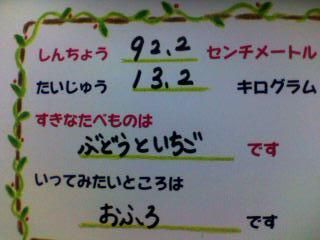 しんちょう 92.2 センチメートル
たいじゅう 13.2 キログラム
すきなたべものは
ぶどうといちご です
いってみたいところは
おふろ です